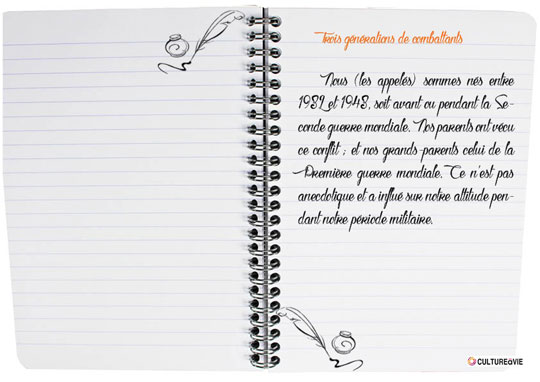 Trois générations de combattants
Nous (les appelés) sommes nés entre
1932 et 1943, soit avant ou pendant la Se-
conde guerre mondiale. Nos parents ont vécu
ce conflit ; et nos grands-parents celui de la
Première guerre mondiale. Ce n'est pas
anecdotique et a influé sur notre attitude pen-
dant notre période militaire.
CULTUREàVIE